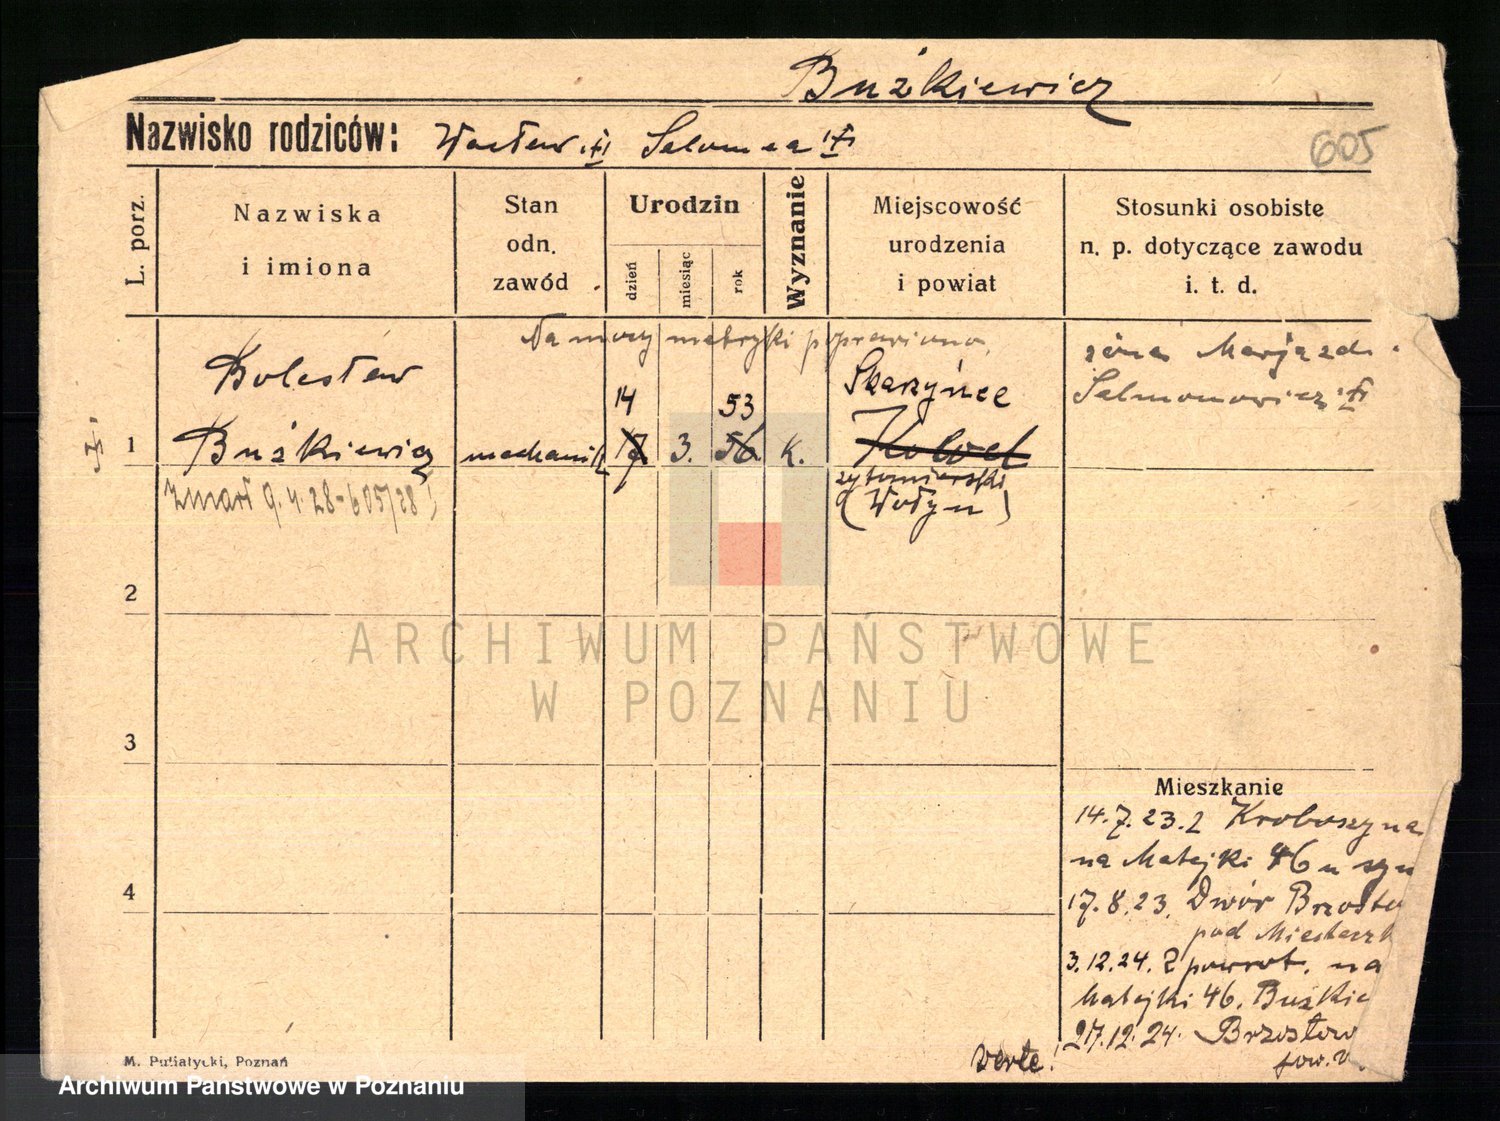 Buźkiewicz
Nazwisko rodziców: Wacław Salomea
605
L. porz.
Nazwiska i imiona
Stan odn. zawód
Urodzin
dzień
miesiąc
rok
Wyznanie
Miejscowość urodzenia i powiat
Stosunki osobiste n. p. dotyczące zawodu i. t. d.
Na mocy metryki poprawiono.
Bolesław
14 53 Skarzyńce
żona Marja zd.
Salmonowicz
1 Buźkiewicz mechanik 17 3. 56 k. Kowel
żytomierski
zmarł 9.4.28-605/28
(Wołyn)
2
ARCHIWUM PAŃSTWOWE
W POZNANIU
3
Mieszkanie
14.7.23. z Kroboszyna
na Matejki 46 u
4
17.8.23. Dwór
pod
3.12.24. z powrot. na
Matejki 46.
27.12.24.
verte!
M. Putiatycki, Poznań
Archiwum Państwowe w Poznaniu